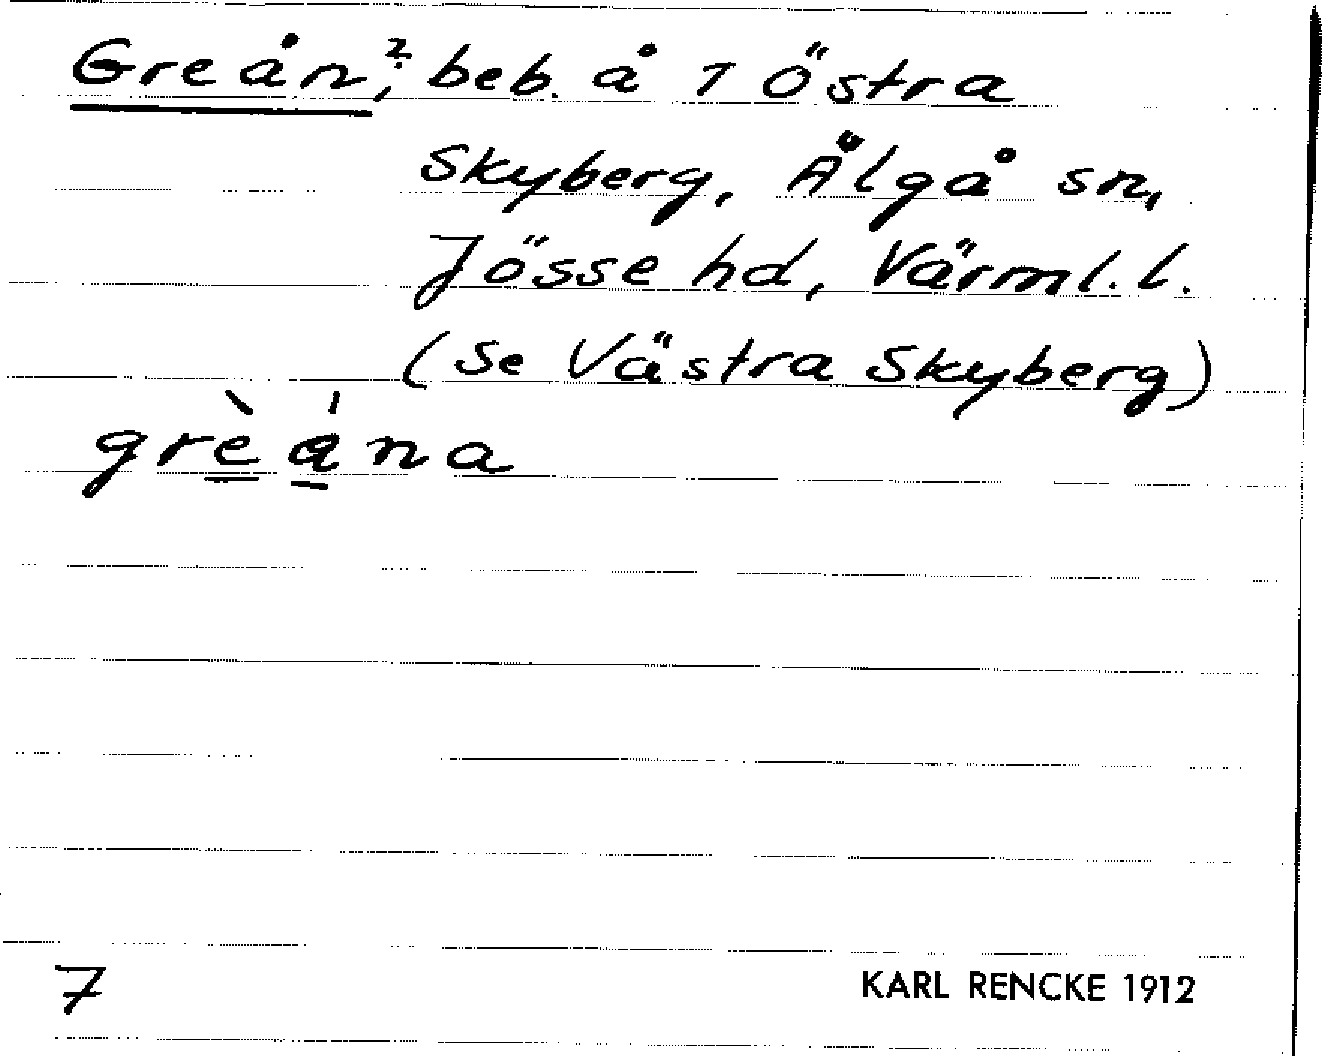 Greån,? beb. å 7 Östra
Skyberg, Älgå sn,
Jösse hd, Värml. l.
(Se Västra Skyberg)
grèa̍na
7
KARL RENCKE 1912